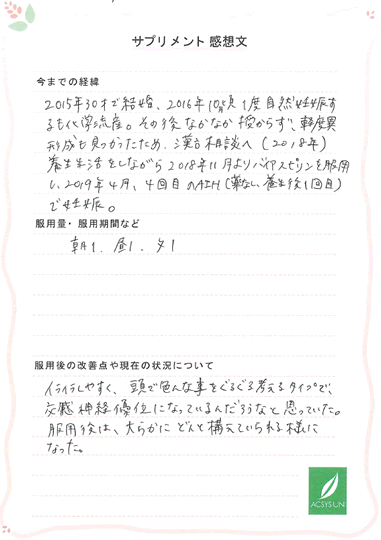 サプリメント 感想文
今までの経緯
2015年30才で結婚、2016年10月頃1度自然妊娠す
るも化学流産。その後なかなか授からず、軽度異
形成も見つかったため、漢方相談へ(2018年)
養生生活をしながら2018年11月よりバイアスピリンを服用
し、2019年4月、4回目のAIH(薬なし、養生後1回目)
で妊娠。
服用量・服用期間など
朝1、昼1、夕1
服用後の改善点や現在の状況について
イライラしやすく、頭で色んな事をぐるぐる考えるタイプで、
交感神経優位になっているんだろうなと思っていた。
服用後は、大らかにどんと構えていられる様に
なった。
ACSYSUN